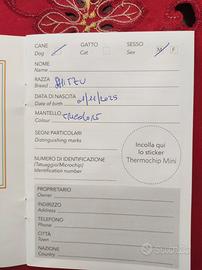 CANE
Dog
GATTO
Cat
SESSO
Sex
M F
NOME
Name
RAZZA
Breed
DATA DI NASCITA
Date of birth 01/11/2025
MANTELLO
Colour TRICOLORE
SEGNI PARTICOLARI
Distinguishing marks
NUMERO DI IDENTIFICAZIONE
(Tatuaggio/Microchip)
Identification number
Incolla qui
lo sticker
Thermochip Mini
PROPRIETARIO
Owner
INDIRIZZO
Address
TELEFONO
Phone
CITTÀ
Town
NAZIONE
Country
subito